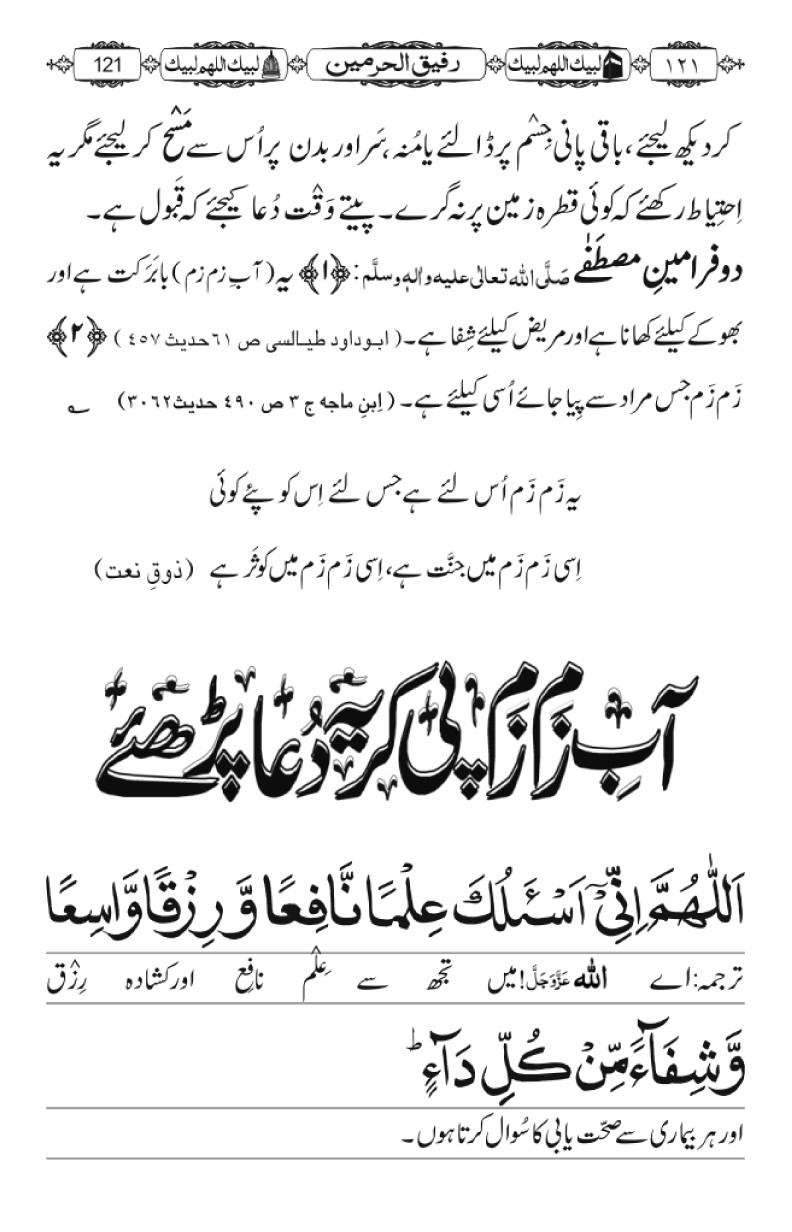 ١٢١ لبیک اللھم لبیک رفیق الحرمین لبیک اللھم لبیک 121
کر دیکھ لیجئے، باقی پانی جِسْم پر ڈالئے یا مُنہ، سَر اور بدن پر اُس سے مَسْح کر لیجئے مگر یہ
اِحتِیاط رکھئے کہ کوئی قطرہ زمین پر نہ گرے۔ پیتے وَقْت دُعا کیجئے کہ قَبول ہے۔
دو فرامینِ مصطَفٰے صَلَّی اللہ تعالٰی علیہ واٰلہٖ وسلَّم: ﴿۱﴾ یہ (آبِ زم زم) بابَرَکت ہے اور
بھوکے کیلئے کھانا ہے اور مریض کیلئے شِفا ہے۔ (ابوداود طیالسی ص ٦١ حدیث ٤٥٧) ﴿۲﴾
زَم زَم جس مراد سے پِیا جائے اُسی کیلئے ہے۔ (اِبنِ ماجہ ج ٣ ص ٤٩٠ حدیث ٣٠٦٢) ؎
یہ زَم زَم اُس لئے ہے جس لئے اِس کو پئے کوئی
اِسی زَم زَم میں جنَّت ہے، اِسی زَم زَم میں کوثَر ہے (ذوقِ نعت)
آبِ زَم زَم پی کر یہ دُعا پڑھئے
اَللّٰھُمَّ اِنِّیْٓ اَسْـَٔلُكَ عِلْمًا نَّافِعًا وَّ رِزْقًا وَّاسِعًا
ترجمہ: اے اللہ عَزَّوَجَلَّ! میں تجھ سے عِلْمِ نافِع اور کشادہ رِزْق
وَّشِفَآءً مِّنْ كُلِّ دَآءٍ ؕ
اور ہر بیماری سے صحّت یابی کا سُوال کرتا ہوں۔